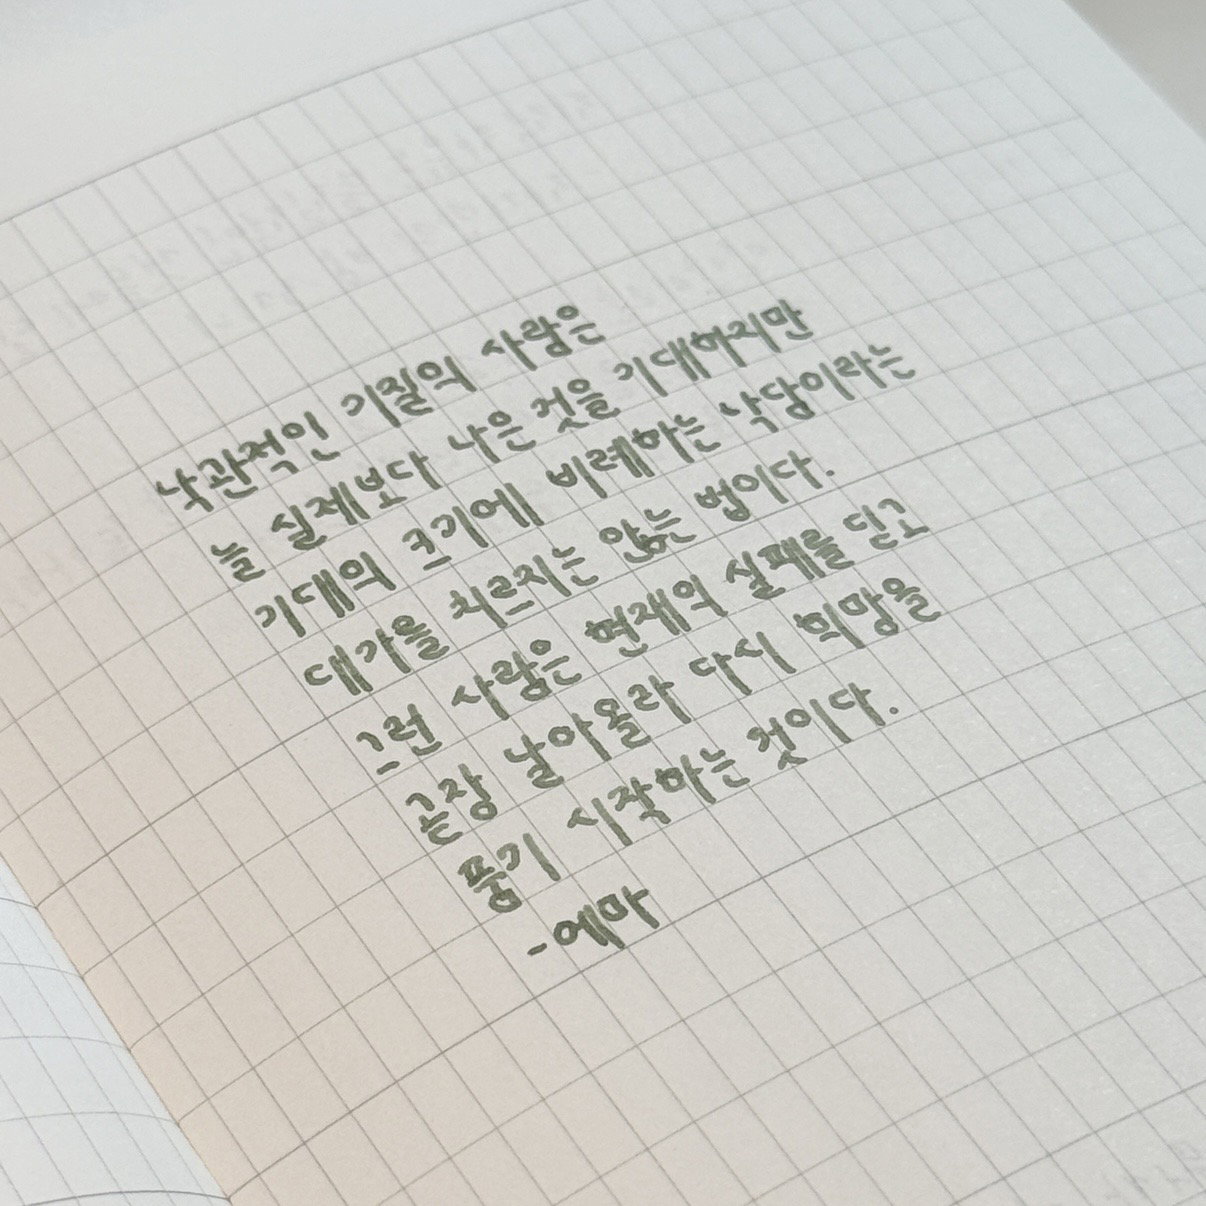 낙관적인 기질의 사람은
늘 실제보다 나은 것을 기대하지만
기대의 크기에 비례하는 낙담이라는
대가를 치르지는 않는 법이다.
그런 사람은 현재의 실패를 딛고
곧장 날아올라 다시 희망을
품기 시작하는 것이다.
-에마